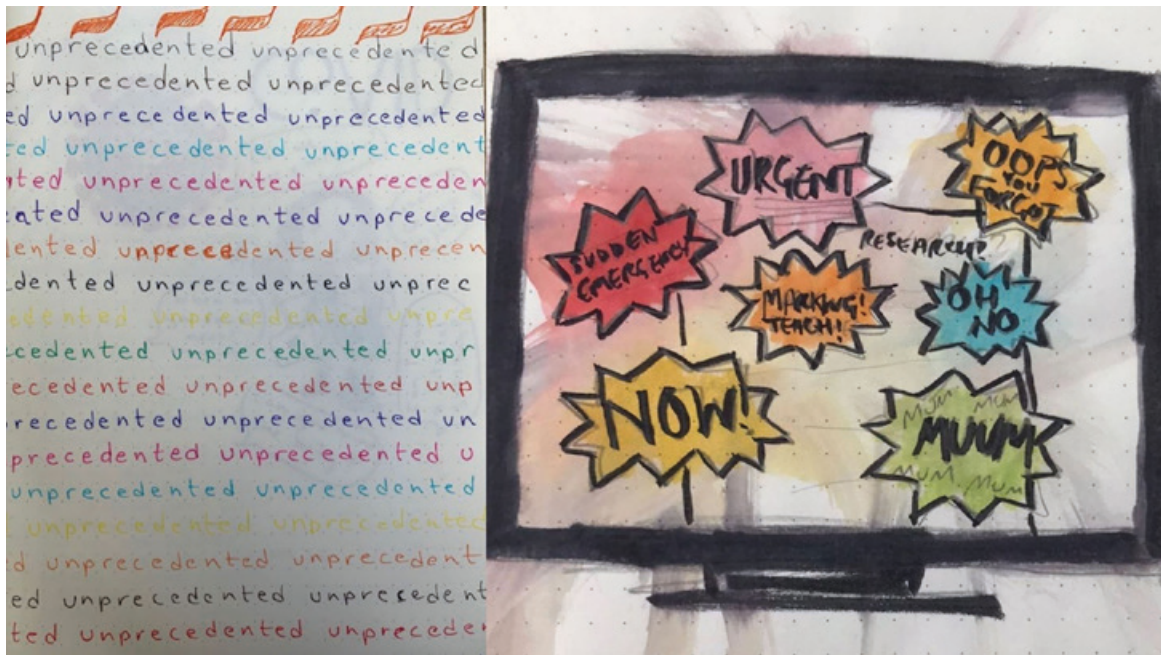 unprecedented unprecedented
d unprecedented unprecedented
ed unprecedented unprecedented
ted unprecedented unprecedent
nted unprecedented unpreceden
ented unprecedented unprecede
dented unprecedented unprecen
dented unprecedented unprec
edented unprecedented unpre
cedented unprecedented unpr
ecedented unprecedented unp
recedented unprecedented un
precedented unprecedented u
unprecedented unprecedented
unprecedented unprecedented
d unprecedented unprecedent
ed unprecedented unprecedent
ted unprecedented unpreceden
URGENT
OOPS
YOU
FORGOT
SUDDEN
EMERGENCY!
RESEARCH?
MARKING!
TEACH!
OH
NO
NOW!
MUM MUM
MUUM
MUM MUM